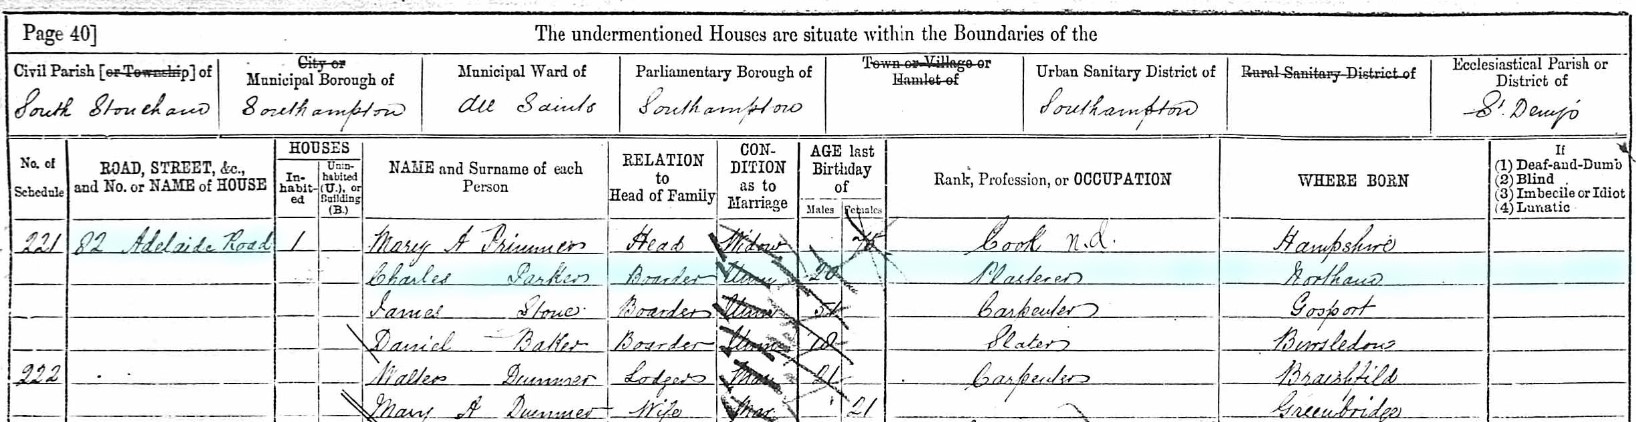 Page 40] The undermentioned Houses are situate within the Boundaries of the
Civil Parish [or Township] of City or Municipal Borough of Municipal Ward of Parliamentary Borough of Town or Village or Hamlet of Urban Sanitary District of Rural Sanitary District of Ecclesiastical Parish or District of
South Stoneham Southampton All Saints Southampton Southampton St Denys
No. of Schedule ROAD, STREET, &c., and No. or NAME of HOUSE HOUSES Inhabited Uninhabited (U.), or Building (B.) NAME and Surname of each Person RELATION to Head of Family CONDITION as to Marriage AGE last Birthday of Males Females Rank, Profession, or OCCUPATION WHERE BORN If (1) Deaf-and-Dumb (2) Blind (3) Imbecile or Idiot (4) Lunatic
221 82 Adelaide Road 1 Mary A Primmer Head Widow Cook n.d. Hampshire
Charles Parker Boarder Unm 20 Plasterer Northam
James Stone Boarder Unm Carpenter Gosport
Daniel Baker Boarder Unm 18 Slater Bursledon
222 Walter Dummer Lodger Mar 21 Carpenter Braishfield
Mary A Dummer Wife Mar 21 Greenbridge